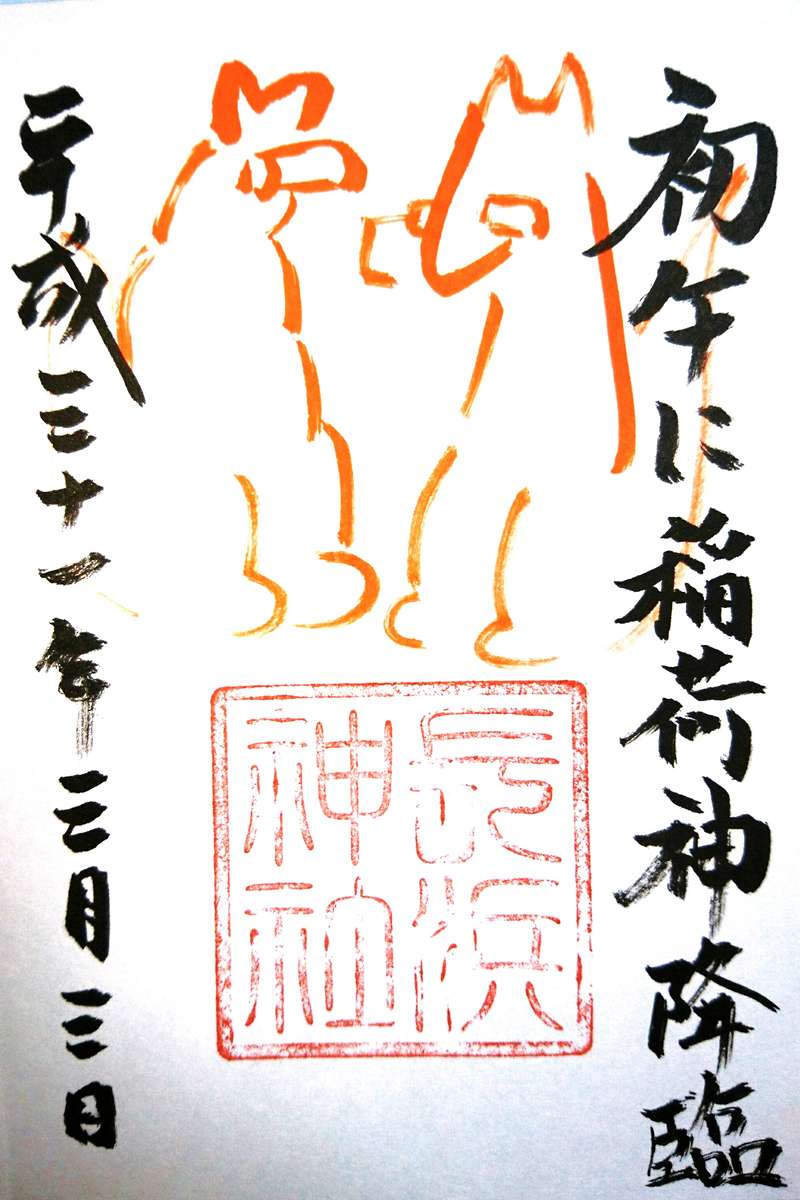 初午に稲荷神降臨
長浜
神社
平成三十一年三月三日